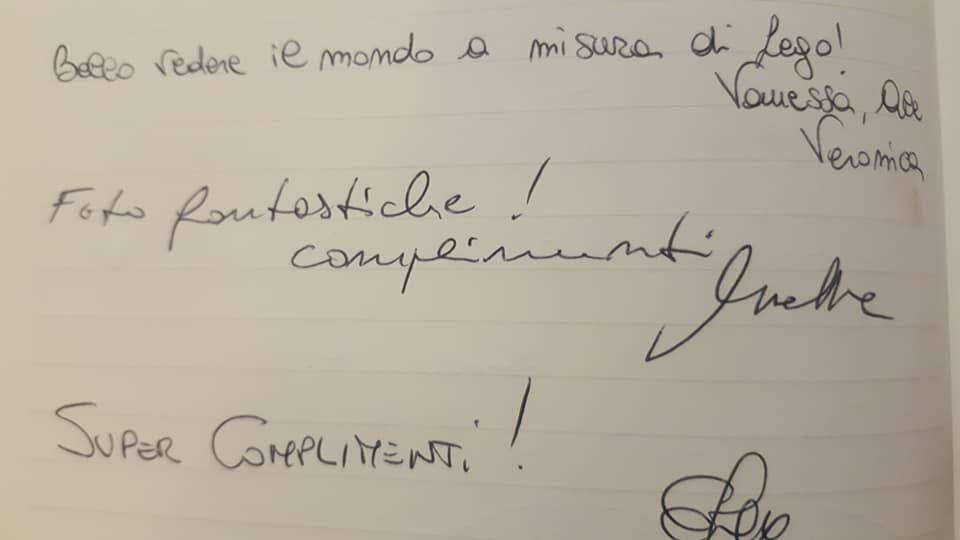 Bello vedere il mondo a misura di Lego!
Vanessa,
Veronica
Foto fantastiche!
complimenti
SUPER COMPLIMENTI!